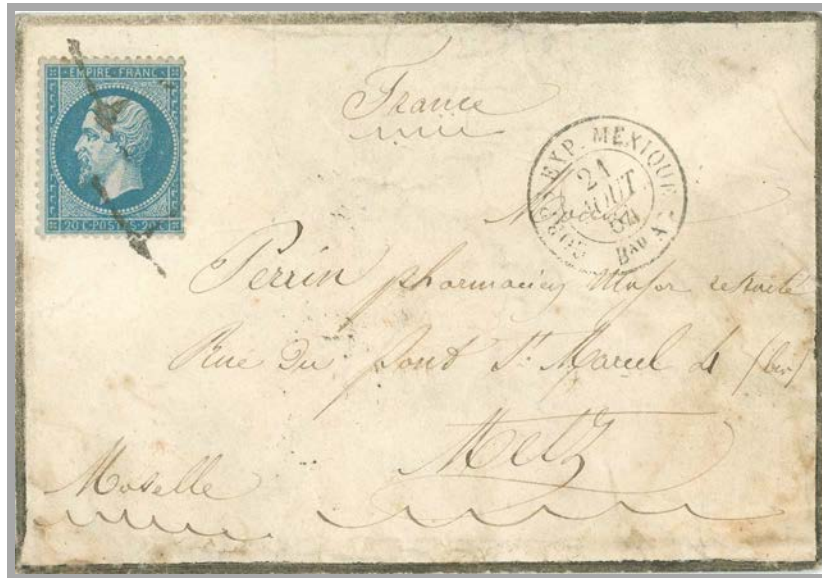 EMPIRE FRANC
20 C POSTES 20 C
France
CORPS EXP. MEXIQUE
21
AOUT
64
Bau A
Perrin pharmacien Major retraité
Rue du pont St. Marcel 4 (bis)
Metz
Moselle